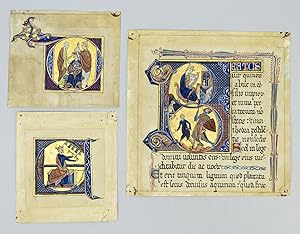 BEATUS
vir qui non
abiit in con
silio impior
et in via pec
catorum non
stetit: et in ca
thedra pestile
tie non sedit
Sed in lege
domini voluntas eius: et in lege eius me
ditabitur die ac nocte
Et erit tanquam lignum quod plantatu
est secus decursus aquarum: quod fruc